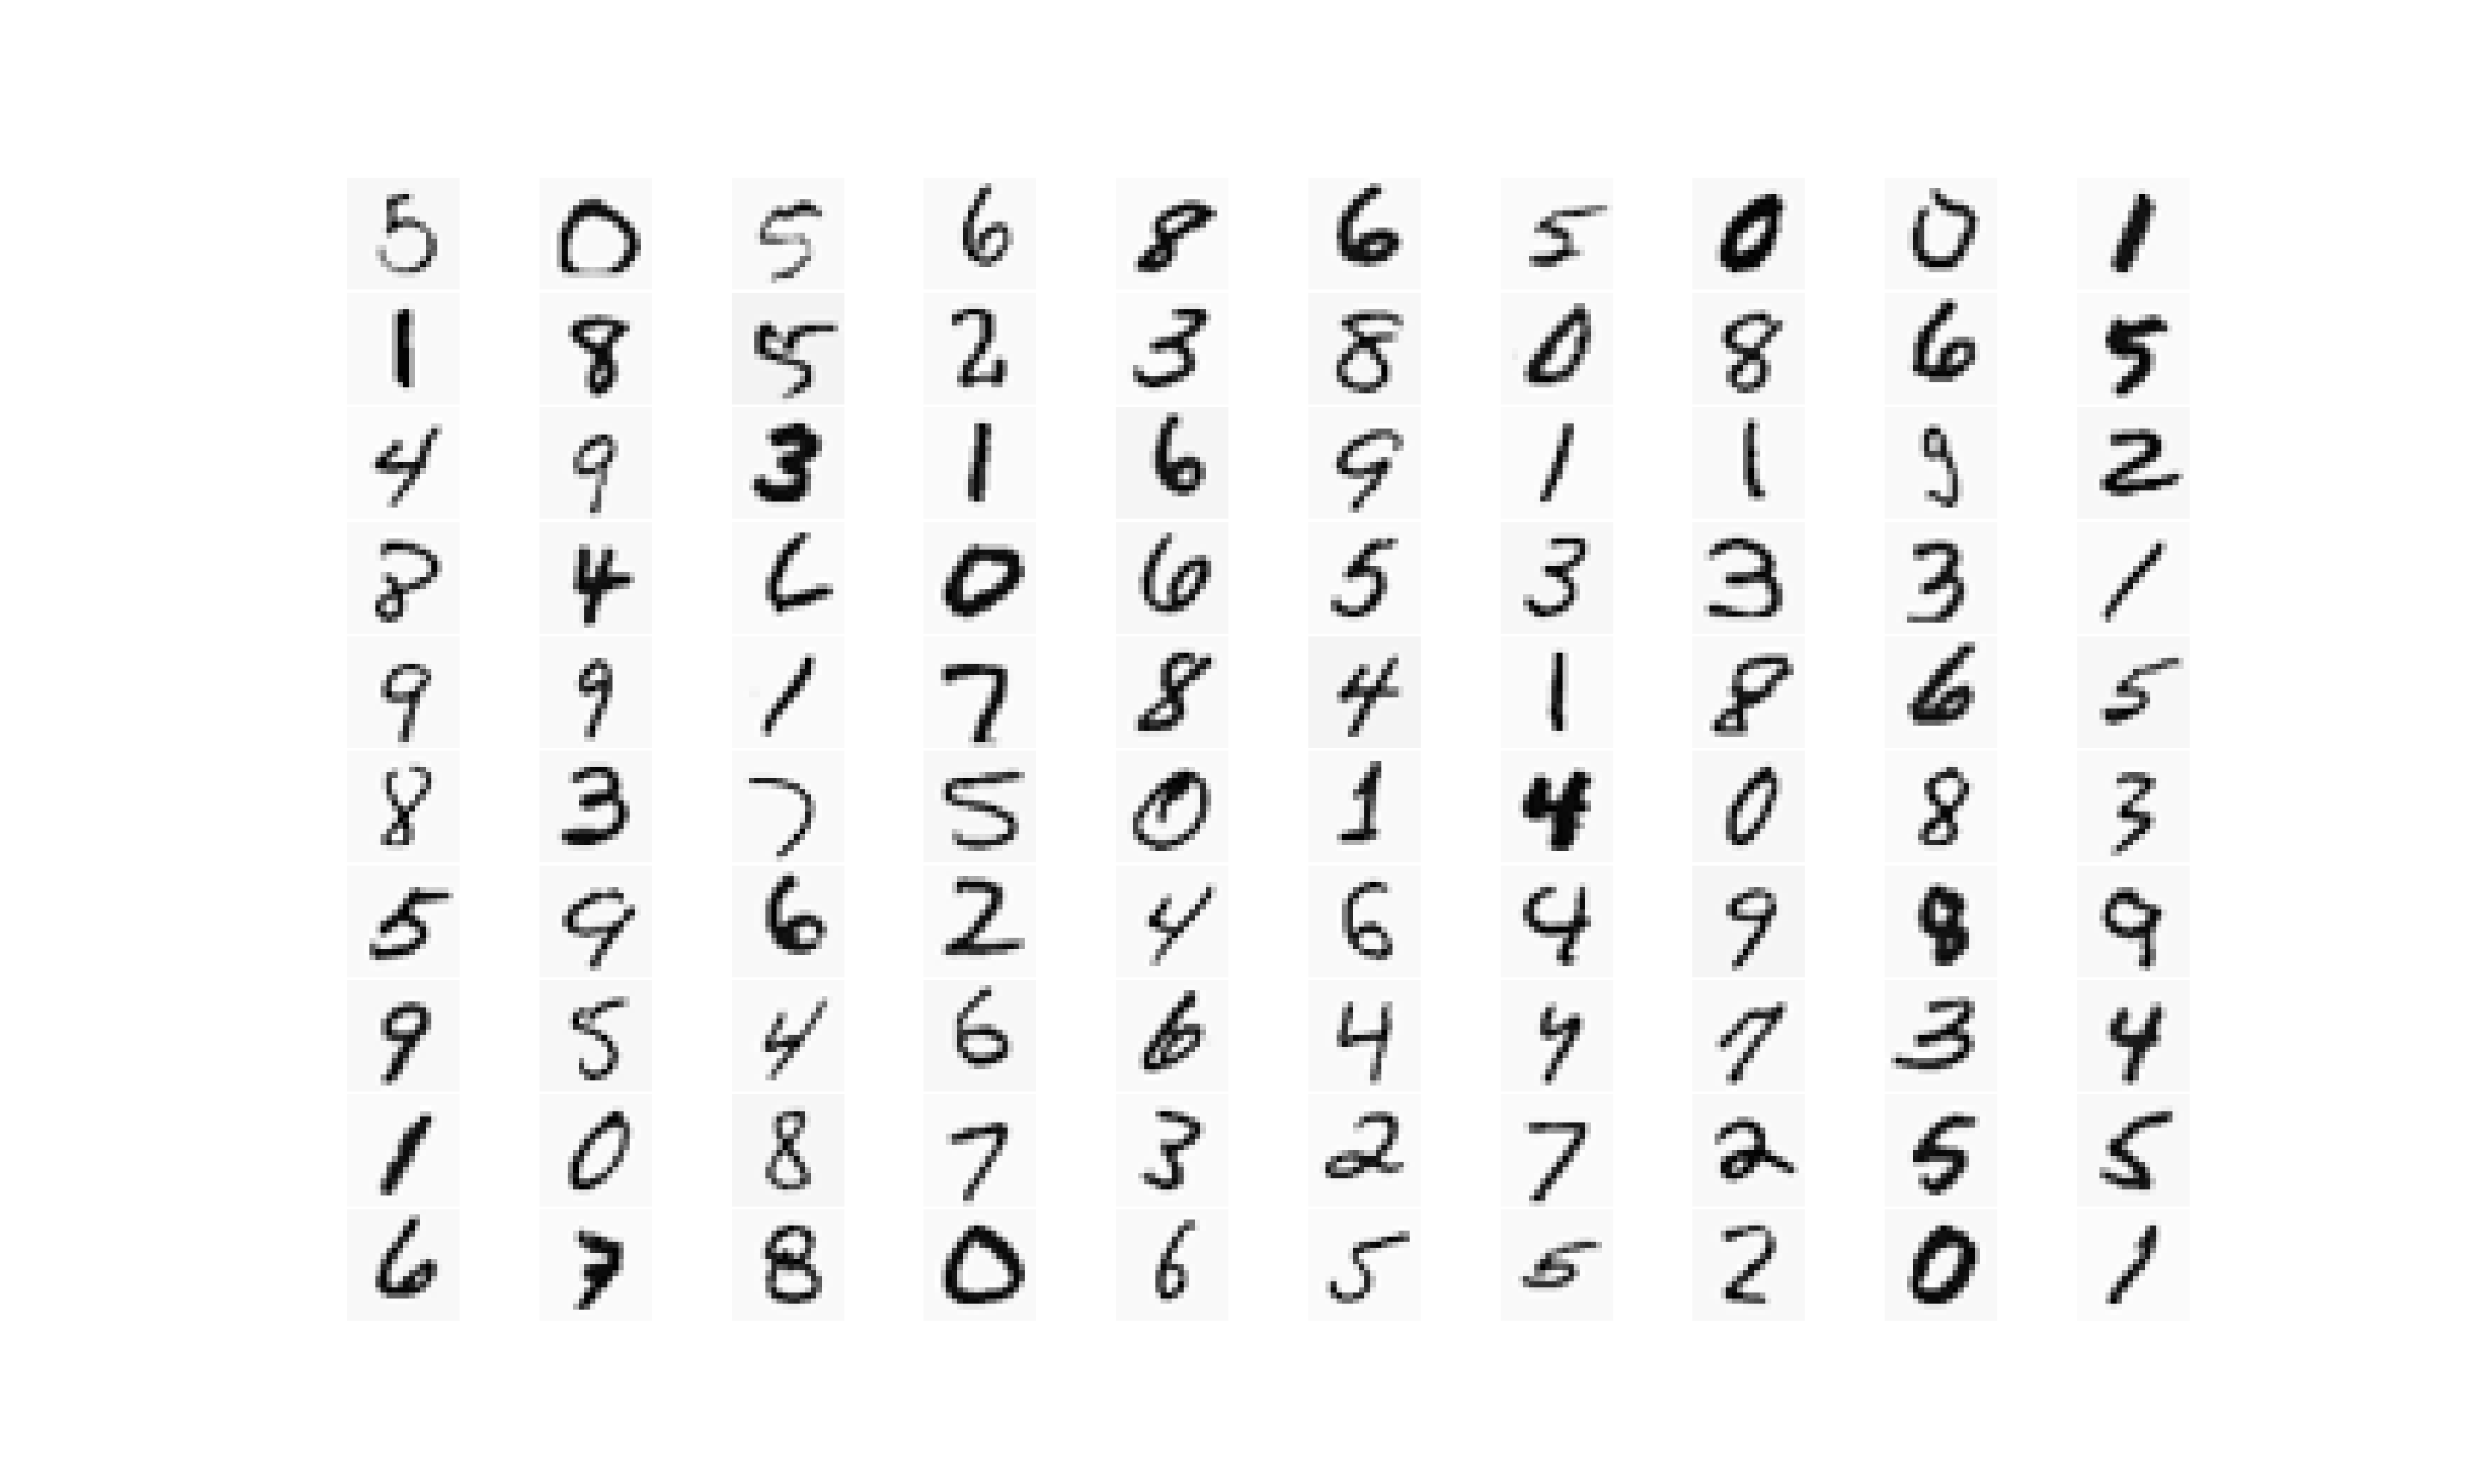 5 0 5 6 8 6 5 0 0 1
1 8 5 2 3 8 0 8 6 5
4 9 3 1 6 9 1 1 9 2
8 4 6 0 6 5 3 3 3 1
9 9 1 7 8 4 1 8 6 5
8 3 7 5 0 1 4 0 8 3
5 9 6 2 4 6 4 9 8 9
9 5 4 6 6 4 4 7 3 4
1 0 8 7 3 2 7 2 5 5
6 7 8 0 6 5 5 2 0 1